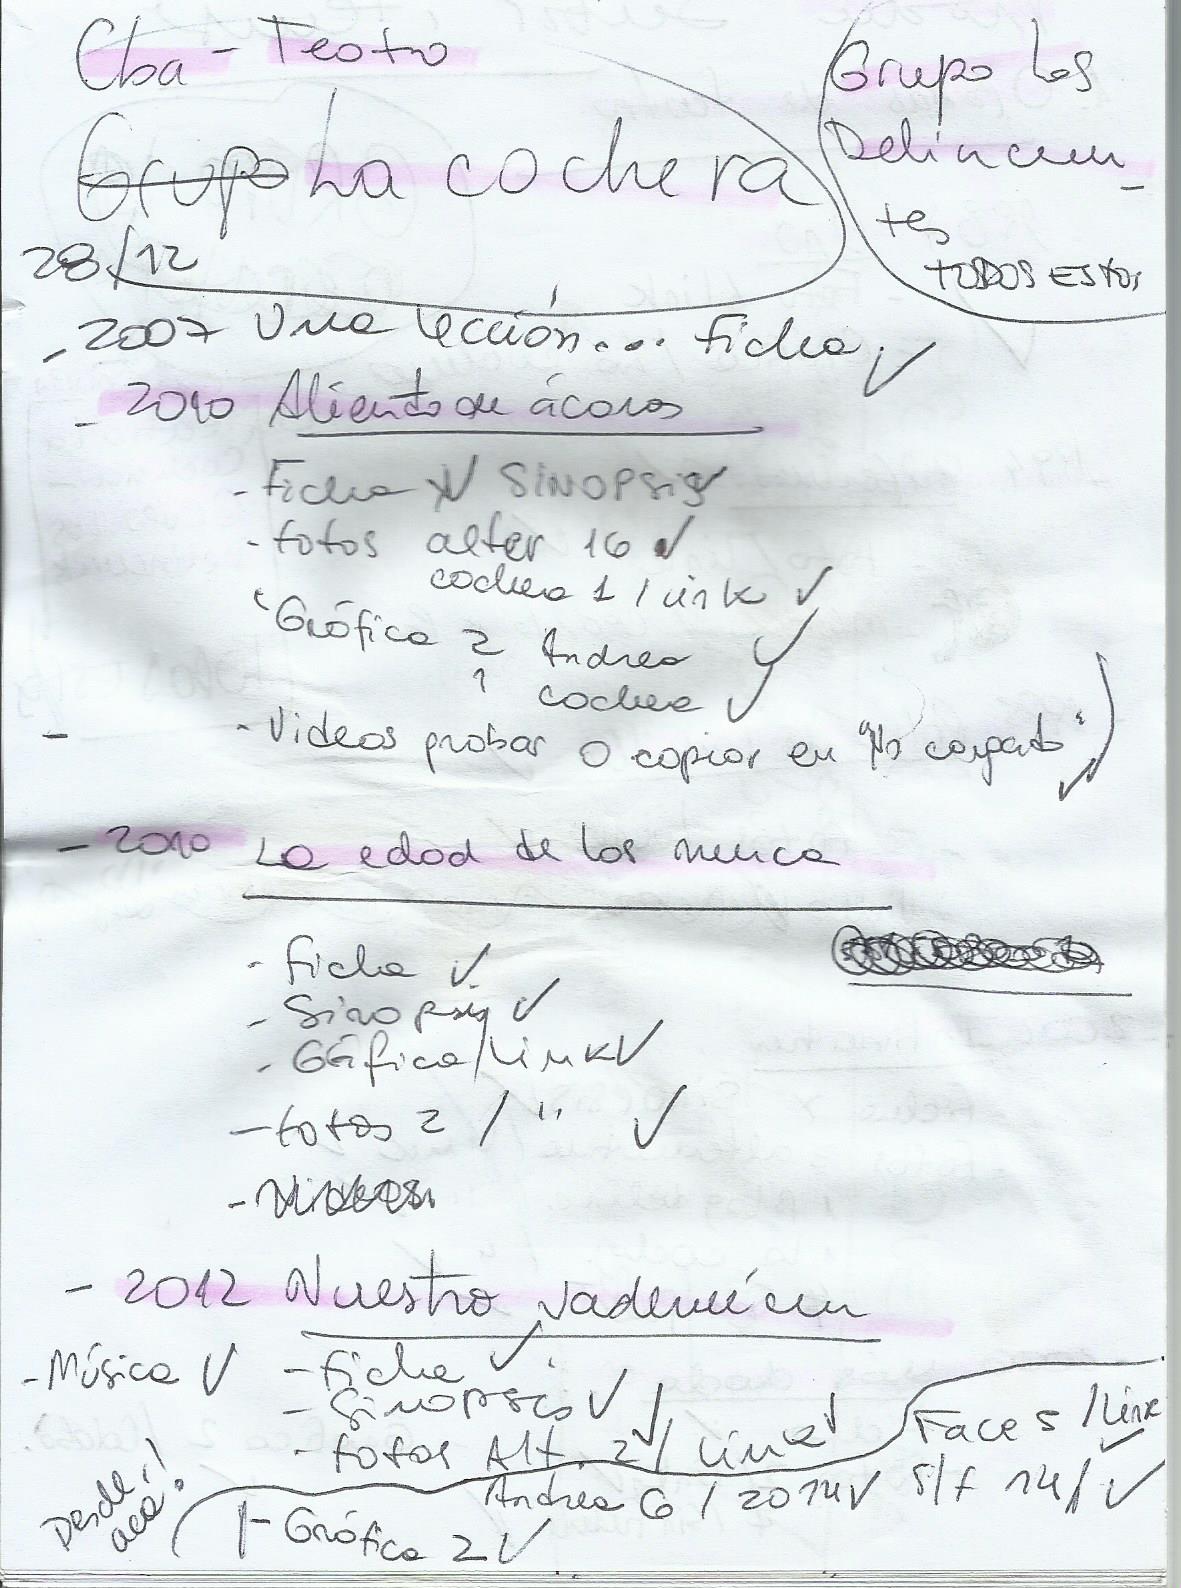 Cba - Teatro
Grupo La cochera
28/12
Grupo Los
Delincuen
-
tes
TODOS ESTOS
- 2007 Una lección... Ficha ✓
- 2010 Aliento de ácaros
- Ficha ✓ SINOPSIS ✓
- fotos alter 16 ✓
cochera 1 / link ✓
- Gráfica 2 Andrea ✓
1 cochera ✓
- Videos probar o copiar en "No cargado" ✓
- 2010 La edad de los nunca
- Ficha ✓
- Sinopsis ✓
- Gráfica / Link ✓
- fotos 2 / " ✓
- Videos
- 2012 Nuestro vademécum
- Música ✓ - ficha ✓
- Sinopsis ✓
- fotos Alt. 2 ✓ / Link ✓ Face 5 / Link ✓
Andrea 6 / 2014 ✓ S/f 14 / ✓
Desde acá!
- Gráfica 2 ✓